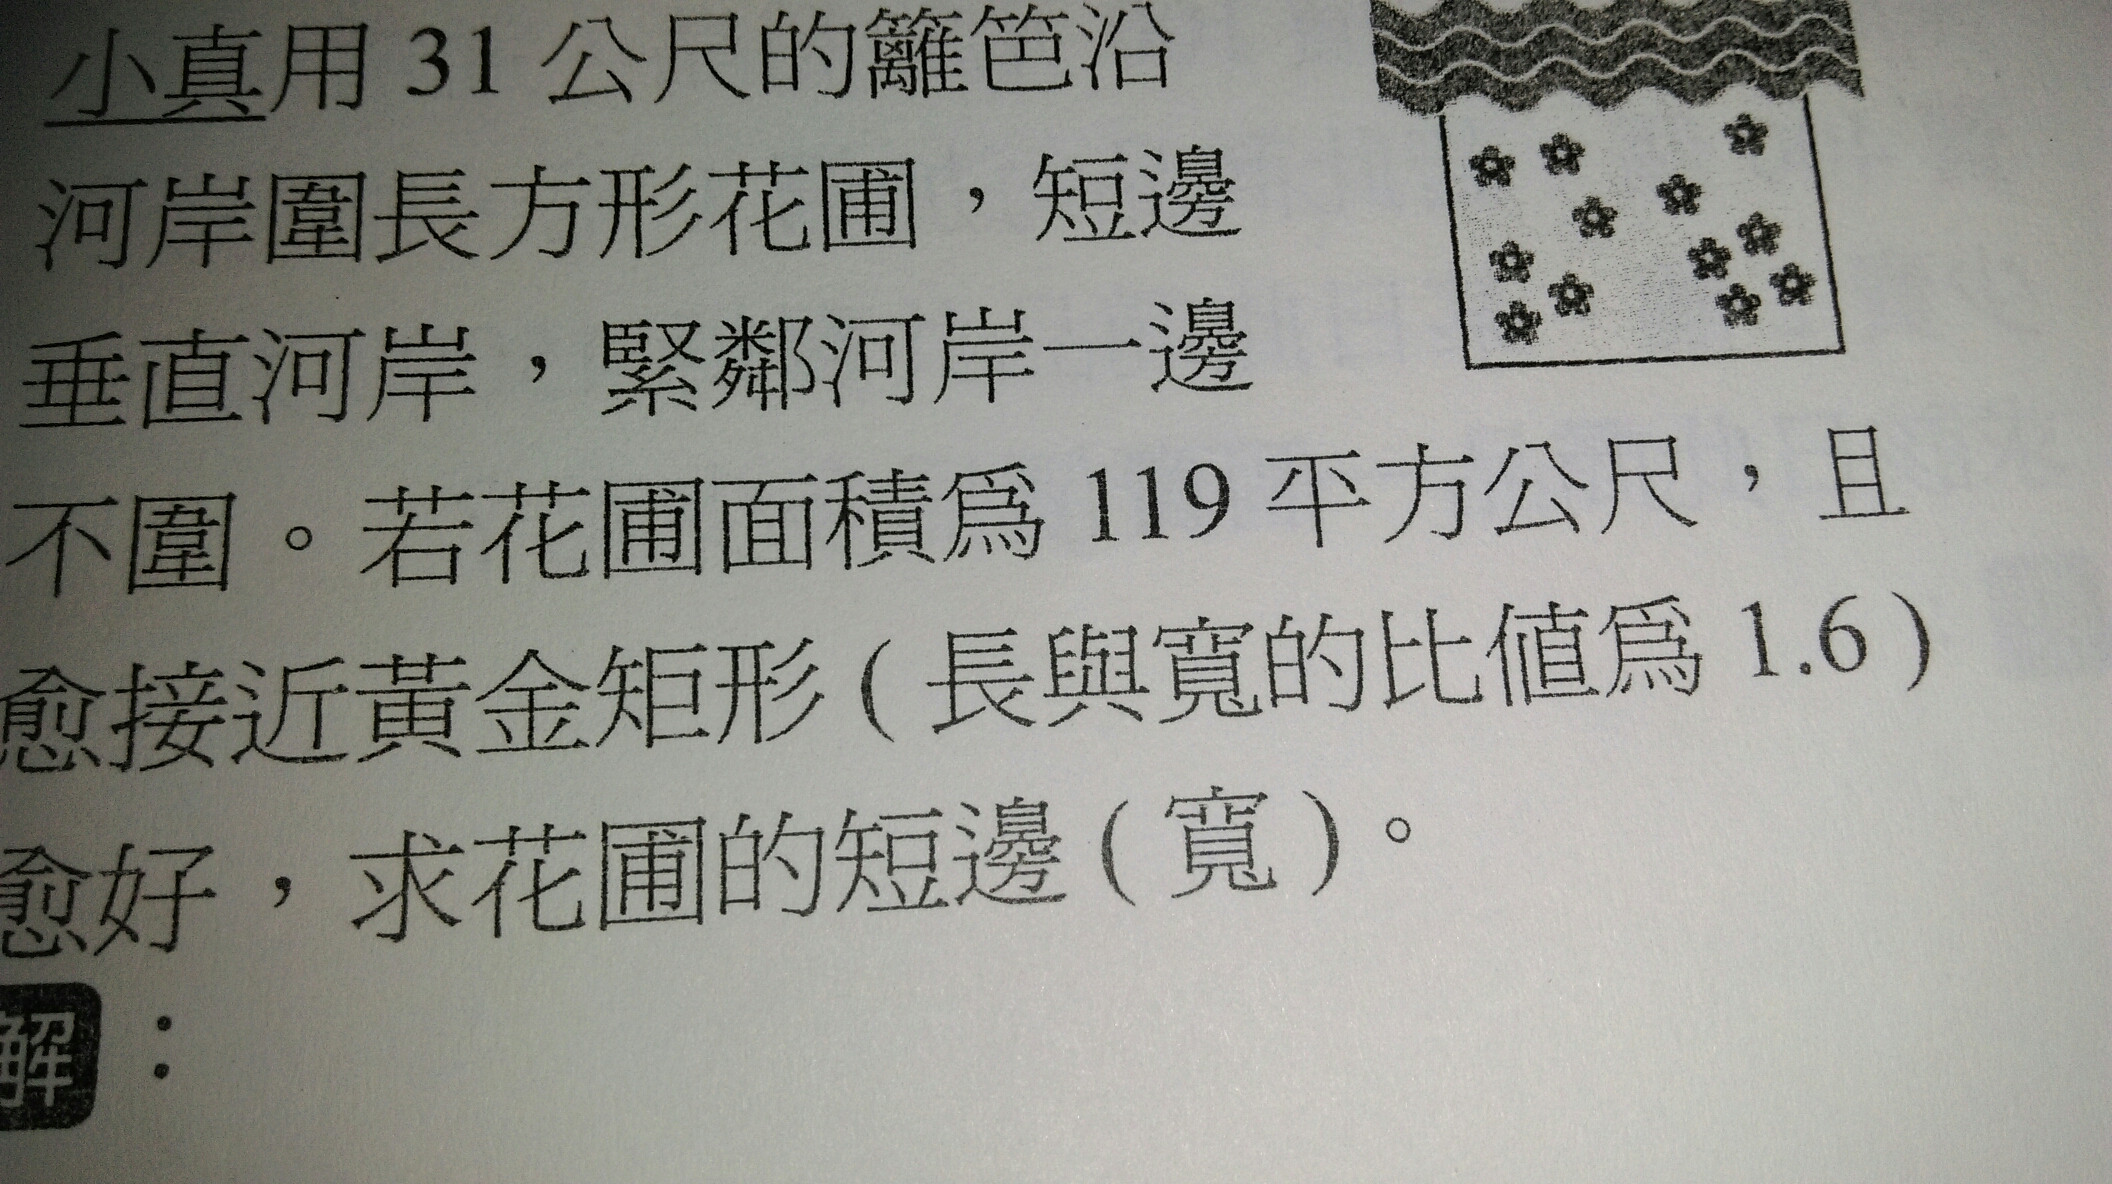 小真用 31 公尺的籬笆沿
河岸圍長方形花圃，短邊
垂直河岸，緊鄰河岸一邊
不圍。若花圃面積為 119 平方公尺，且
愈接近黃金矩形（長與寬的比值為 1.6）
愈好，求花圃的短邊（寬）。
解：